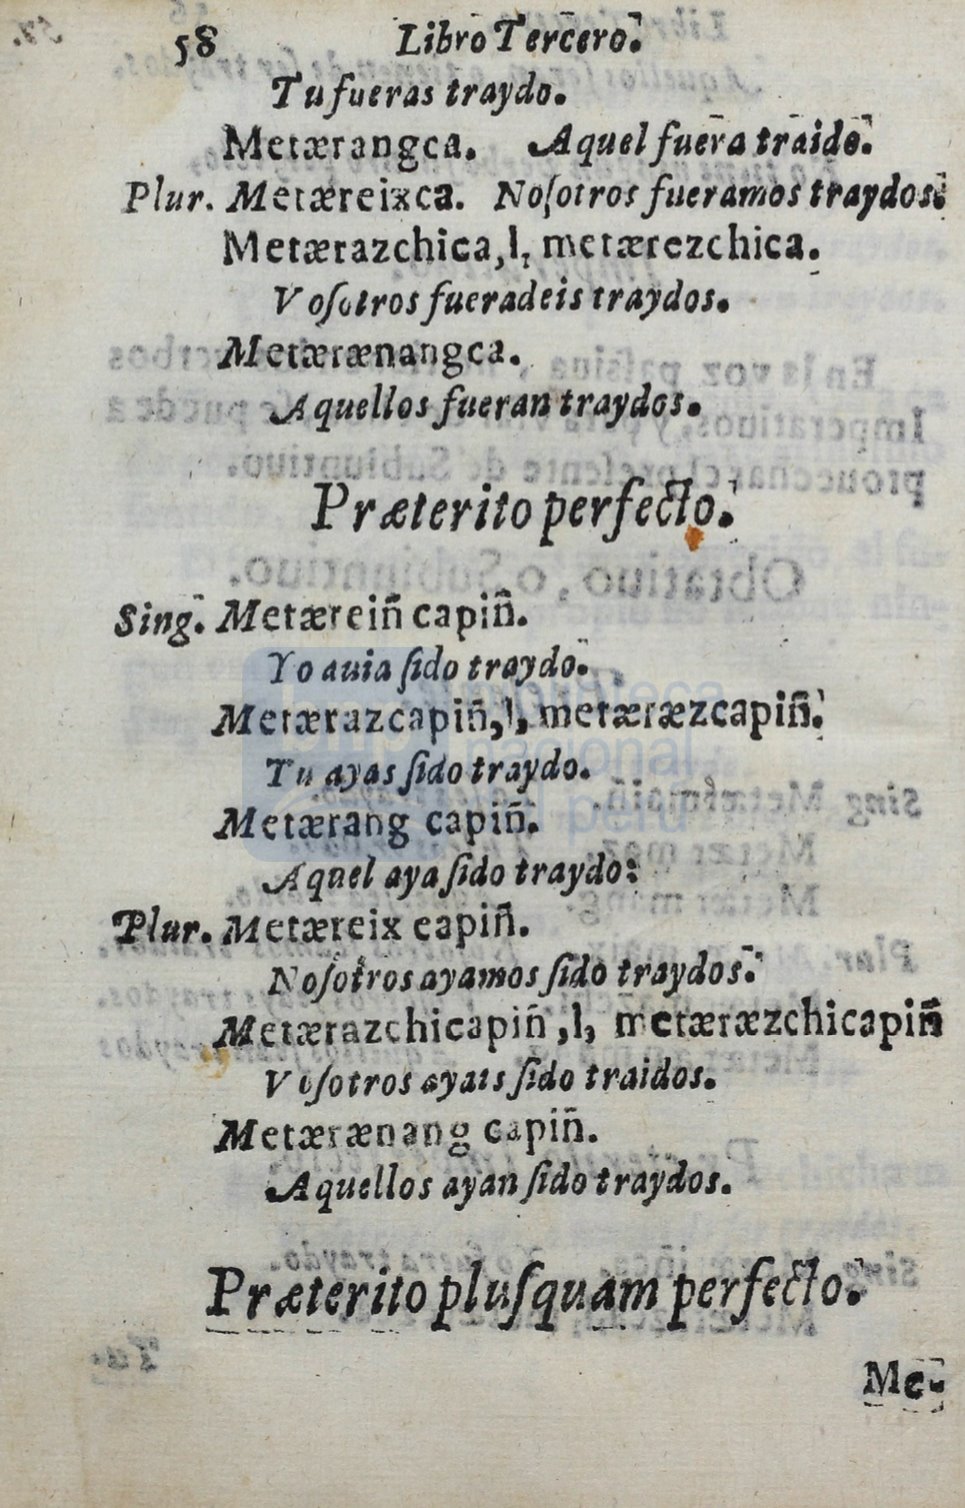 58 Libro Tercero.
Tu fueras traydo.
Metærangca. Aquel fuera traido.
Plur. Metæreixca. Noſotros fueramos traydos.
Metærazchica, l, metærezchica.
Voſotros fueradeis traydos.
Metærænangca.
Aquellos fueran traydos.
Præterito perfecto.
Sing. Metæreiñ capiñ.
Yo auia ſido traydo.
Metærazcapiñ, l, metæræzcapiñ.
Tu ayas ſido traydo.
Metærang capiñ.
Aquel aya ſido traydo:
Plur. Metæreix capiñ.
Noſotros ayamos ſido traydos.
Metærazchicapiñ, l, metæræzchicapiñ
Voſotros ayais ſido traidos.
Metærænang capiñ.
Aquellos ayan ſido traydos.
Præterito pluſquam perfecto.
Me-